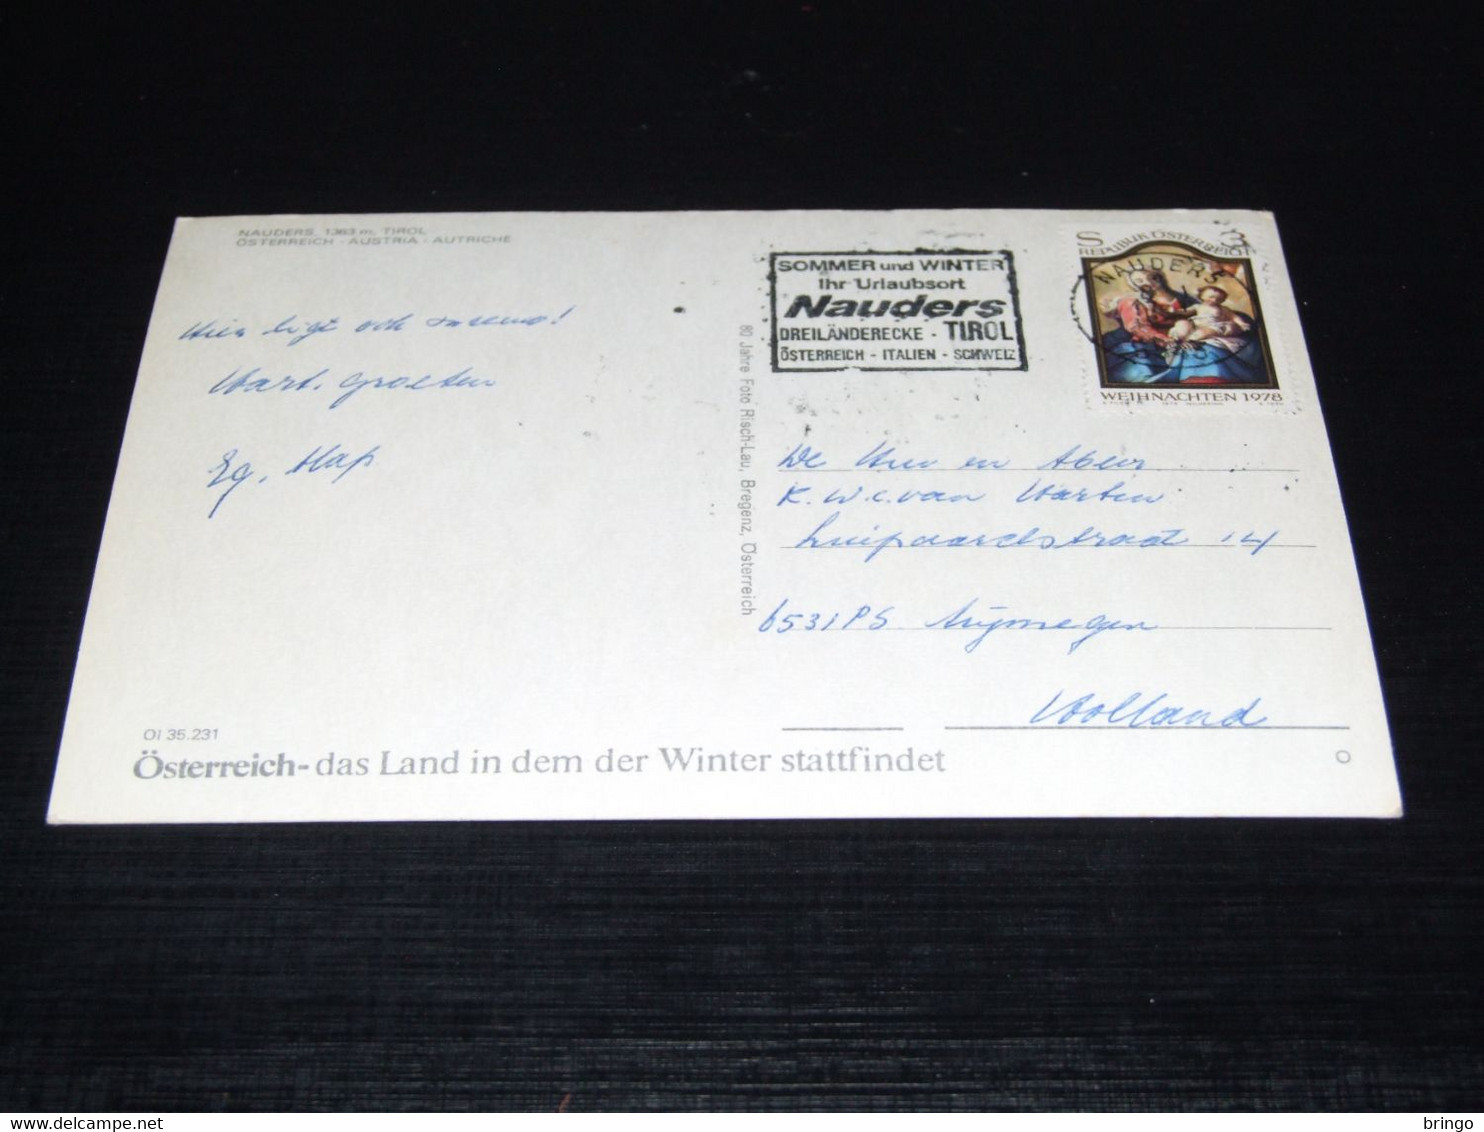 NAUDERS, 1363 m, TIROL
ÖSTERREICH - AUSTRIA - AUTRICHE
Hier ligt ook
Hart. groeten
SOMMER und WINTER
Ihr Urlaubsort
Nauders
DREILÄNDERECKE - TIROL
ÖSTERREICH - ITALIEN - SCHWEIZ
S 3
REPUBLIK ÖSTERREICH
NAUDERS
WEIHNACHTEN 1978
80 Jahre Foto Risch-Lau, Bregenz, Österreich
De en
K. W. C. van Harten
Luipaardstraat 14
6531PS Nijmegen
Holland
OI 35.231
Österreich-das Land in dem der Winter stattfindet
O
bringo